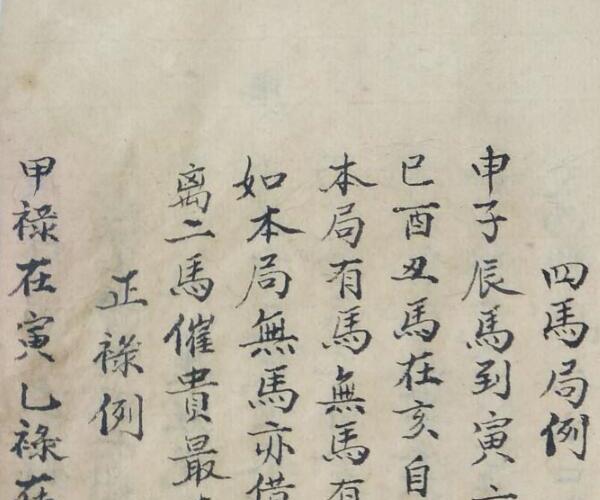 四馬局例
申子辰馬到寅
巳酉丑馬在亥自
本局有馬無馬有
如本局無馬亦借
离二馬催貴最
正禄例
甲禄在寅乙禄在